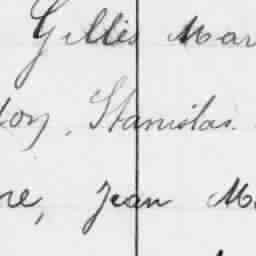 Gillis Mar
on, Stanislas.
re, Jean M